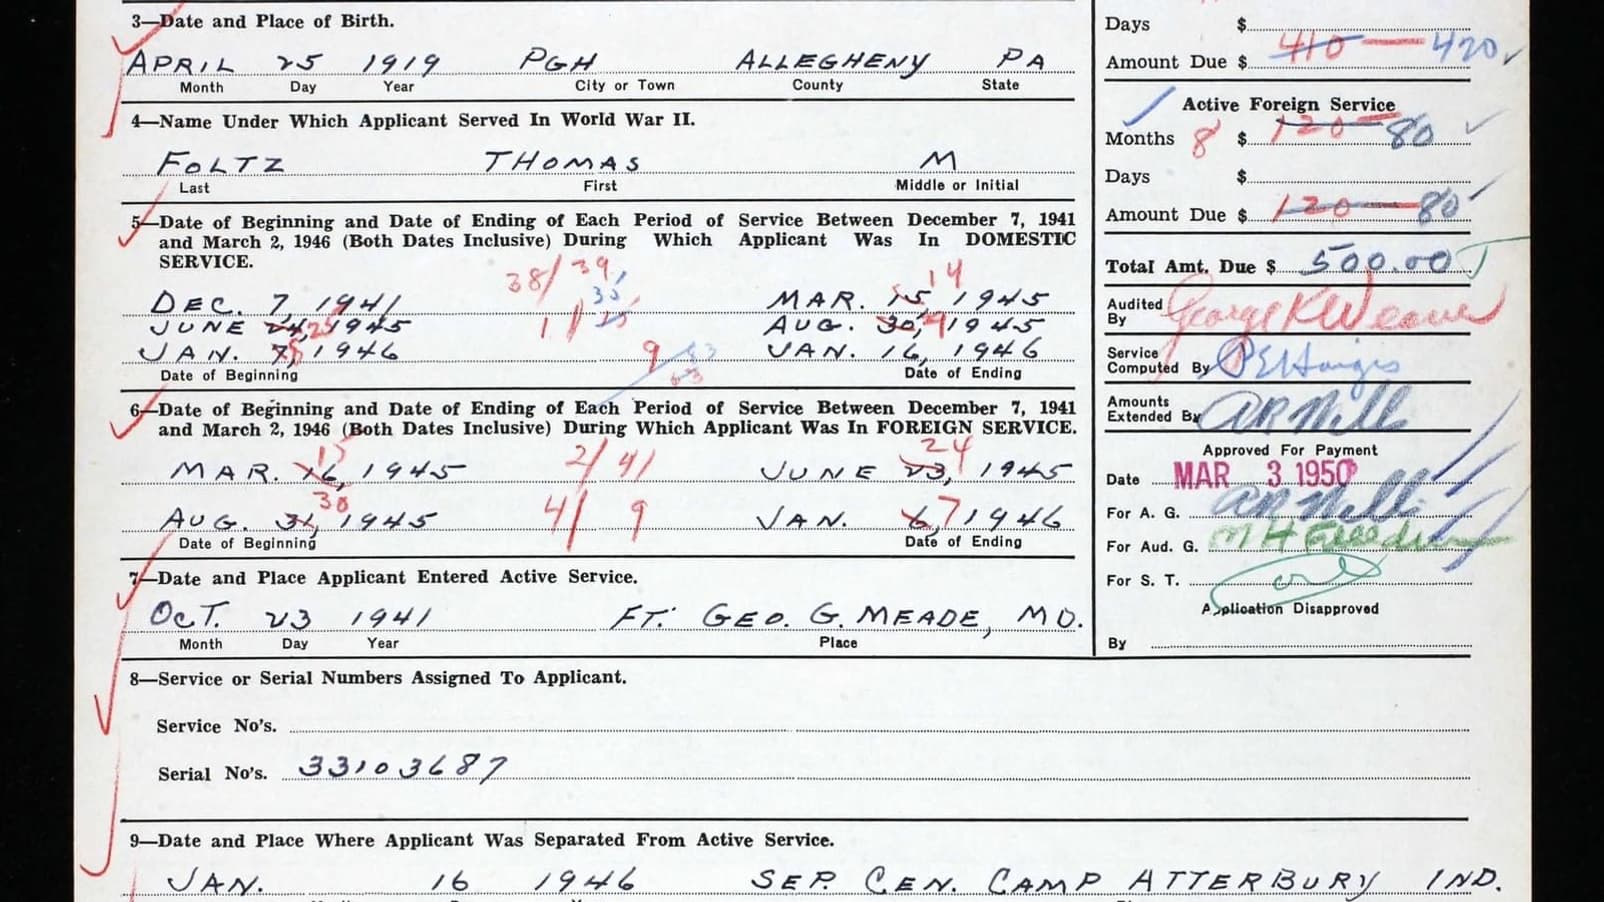 3—Date and Place of Birth.
APRIL 25 1919 PGH ALLEGHENY PA
Month Day Year City or Town County State
4—Name Under Which Applicant Served In World War II.
FOLTZ THOMAS M
Last First Middle or Initial
5—Date of Beginning and Date of Ending of Each Period of Service Between December 7, 1941
and March 2, 1946 (Both Dates Inclusive) During Which Applicant Was In DOMESTIC
SERVICE.
38/39 14
DEC. 7, 1941 MAR. 15, 1945
JUNE 24, 25 1945 AUG. 30, 29 1945
JAN. 7, 8 1946 9 JAN. 16, 1946
Date of Beginning Date of Ending
6—Date of Beginning and Date of Ending of Each Period of Service Between December 7, 1941
and March 2, 1946 (Both Dates Inclusive) During Which Applicant Was In FOREIGN SERVICE.
15 24
MAR. 16, 1945 JUNE 23, 1945
30 4/9
AUG. 31, 1945 JAN. 6, 7 1946
Date of Beginning Date of Ending
7—Date and Place Applicant Entered Active Service.
OCT. 23 1941 FT. GEO. G. MEADE, MD.
Month Day Year Place
8—Service or Serial Numbers Assigned To Applicant.
Service No's.
Serial No's. 33103687
9—Date and Place Where Applicant Was Separated From Active Service.
JAN. 16 1946 SEP. CEN. CAMP ATTERBURY IND.
Days $
Amount Due $ 410 — 420
Active Foreign Service
Months 8 $ 120 — 80
Days $
Amount Due $ 120 — 80
Total Amt. Due $ 500.00
Audited
By George K Weaver
Service
Computed By
Amounts
Extended By
Approved For Payment
Date MAR 3 1950
For A. G.
For Aud. G.
For S. T.
Application Disapproved
By